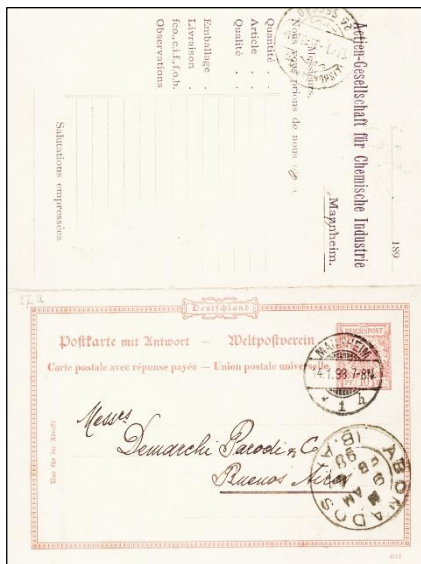 189
Actien-Gesellschaft für Chemische Industrie
Mannheim.
Messieurs,
Nous vous prions de nous
Quantité
Article
Qualité
Emballage
Livraison
fco., c.i.f., f.o.b.
Observations
Salutations empressées
Deutschland
REICHSPOST
Postkarte mit Antwort — Weltpostverein
Carte postale avec réponse payée — Union postale universelle
MANNHEIM
14.1.98 7-8N.
1 h
Nur für die Adresse
Messrs
Demarchi Parodi & Co
Buenos Aires
ABONADOS
98